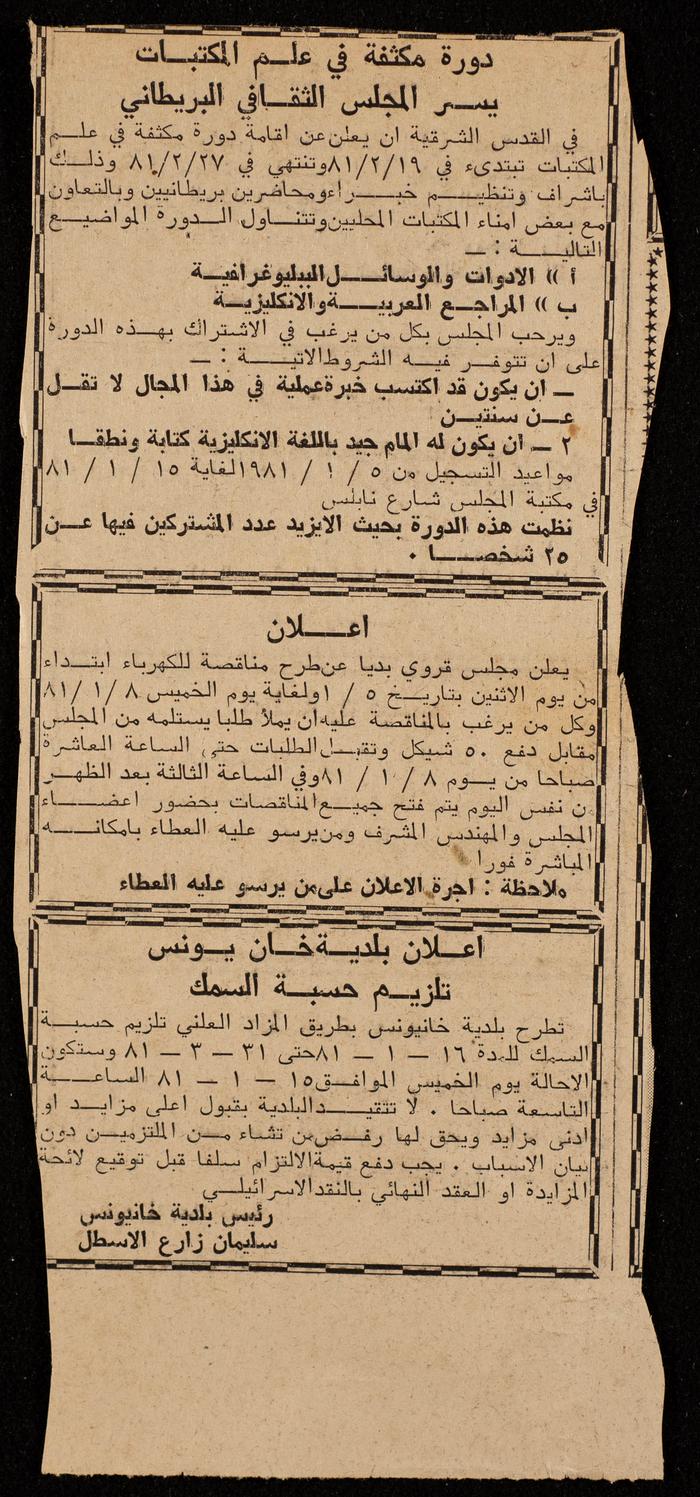 دورة مكثفة في علم المكتبات
يسر المجلس الثقافي البريطاني
في القدس الشرقية ان يعلن عن اقامة دورة مكثفة في علم
المكتبات تبتدىء في ٨١/٢/١٩ وتنتهي في ٨١/٢/٢٧ وذلك
باشراف وتنظيم خبراء ومحاضرين بريطانيين وبالتعاون
مع بعض امناء المكتبات المحليين وتتناول الدورة المواضيع
التالية : ـ
أ )) الادوات والوسائل الببليوغرافية
ب )) المراجع العربية والانكليزية
ويرحب المجلس بكل من يرغب في الاشتراك بهذه الدورة
على ان تتوفر فيه الشروط الاتية : ـ
ـ ان يكون قد اكتسب خبرة عملية في هذا المجال لا تقل
عن سنتين
٢ ـ ان يكون له المام جيد باللغة الانكليزية كتابة ونطقا
مواعيد التسجيل من ٥ / ١ / ١٩٨١ لغاية ١٥ / ١ / ٨١
في مكتبة المجلس شارع نابلس
نظمت هذه الدورة بحيث الايزيد عدد المشتركين فيها عن
٢٥ شخصا .
اعلان
يعلن مجلس قروي بديا عن طرح مناقصة للكهرباء ابتداء
من يوم الاثنين بتاريخ ٥ / ١ ولغاية يوم الخميس ٨ / ١ / ٨١
وكل من يرغب بالمناقصة عليه أن يملأ طلبا يستلمه من المجلس
مقابل دفع ٥٠ شيكل وتقبل الطلبات حتى الساعة العاشرة
صباحا من يوم ٨ / ١ / ٨١ وفي الساعة الثالثة بعد الظهر
ن نفس اليوم يتم فتح جميع المناقصات بحضور اعضاء
المجلس والمهندس المشرف ومن يرسو عليه العطاء بامكانه
المباشرة فورا
ملاحظة : اجرة الاعلان على من يرسو عليه العطاء
اعلان بلدية خان يونس
تلزيم حسبة السمك
تطرح بلدية خانيونس بطريق المزاد العلني تلزيم حسبة
السمك للمدة ١٦ ـ ١ ـ ٨١ حتى ٣١ ـ ٣ ـ ٨١ وستكون
الاحالة يوم الخميس الموافق ١٥ ـ ١ ـ ٨١ الساعة
التاسعة صباحا . لا تتقيد البلدية بقبول اعلى مزايد او
ادنى مزايد ويحق لها رفض من تشاء من الملتزمين دون
بيان الاسباب . يجب دفع قيمة الالتزام سلفا قبل توقيع لائحة
المزايدة او العقد النهائي بالنقد الاسرائيلي
رئيس بلدية خانيونس
سليمان زارع الاسطل